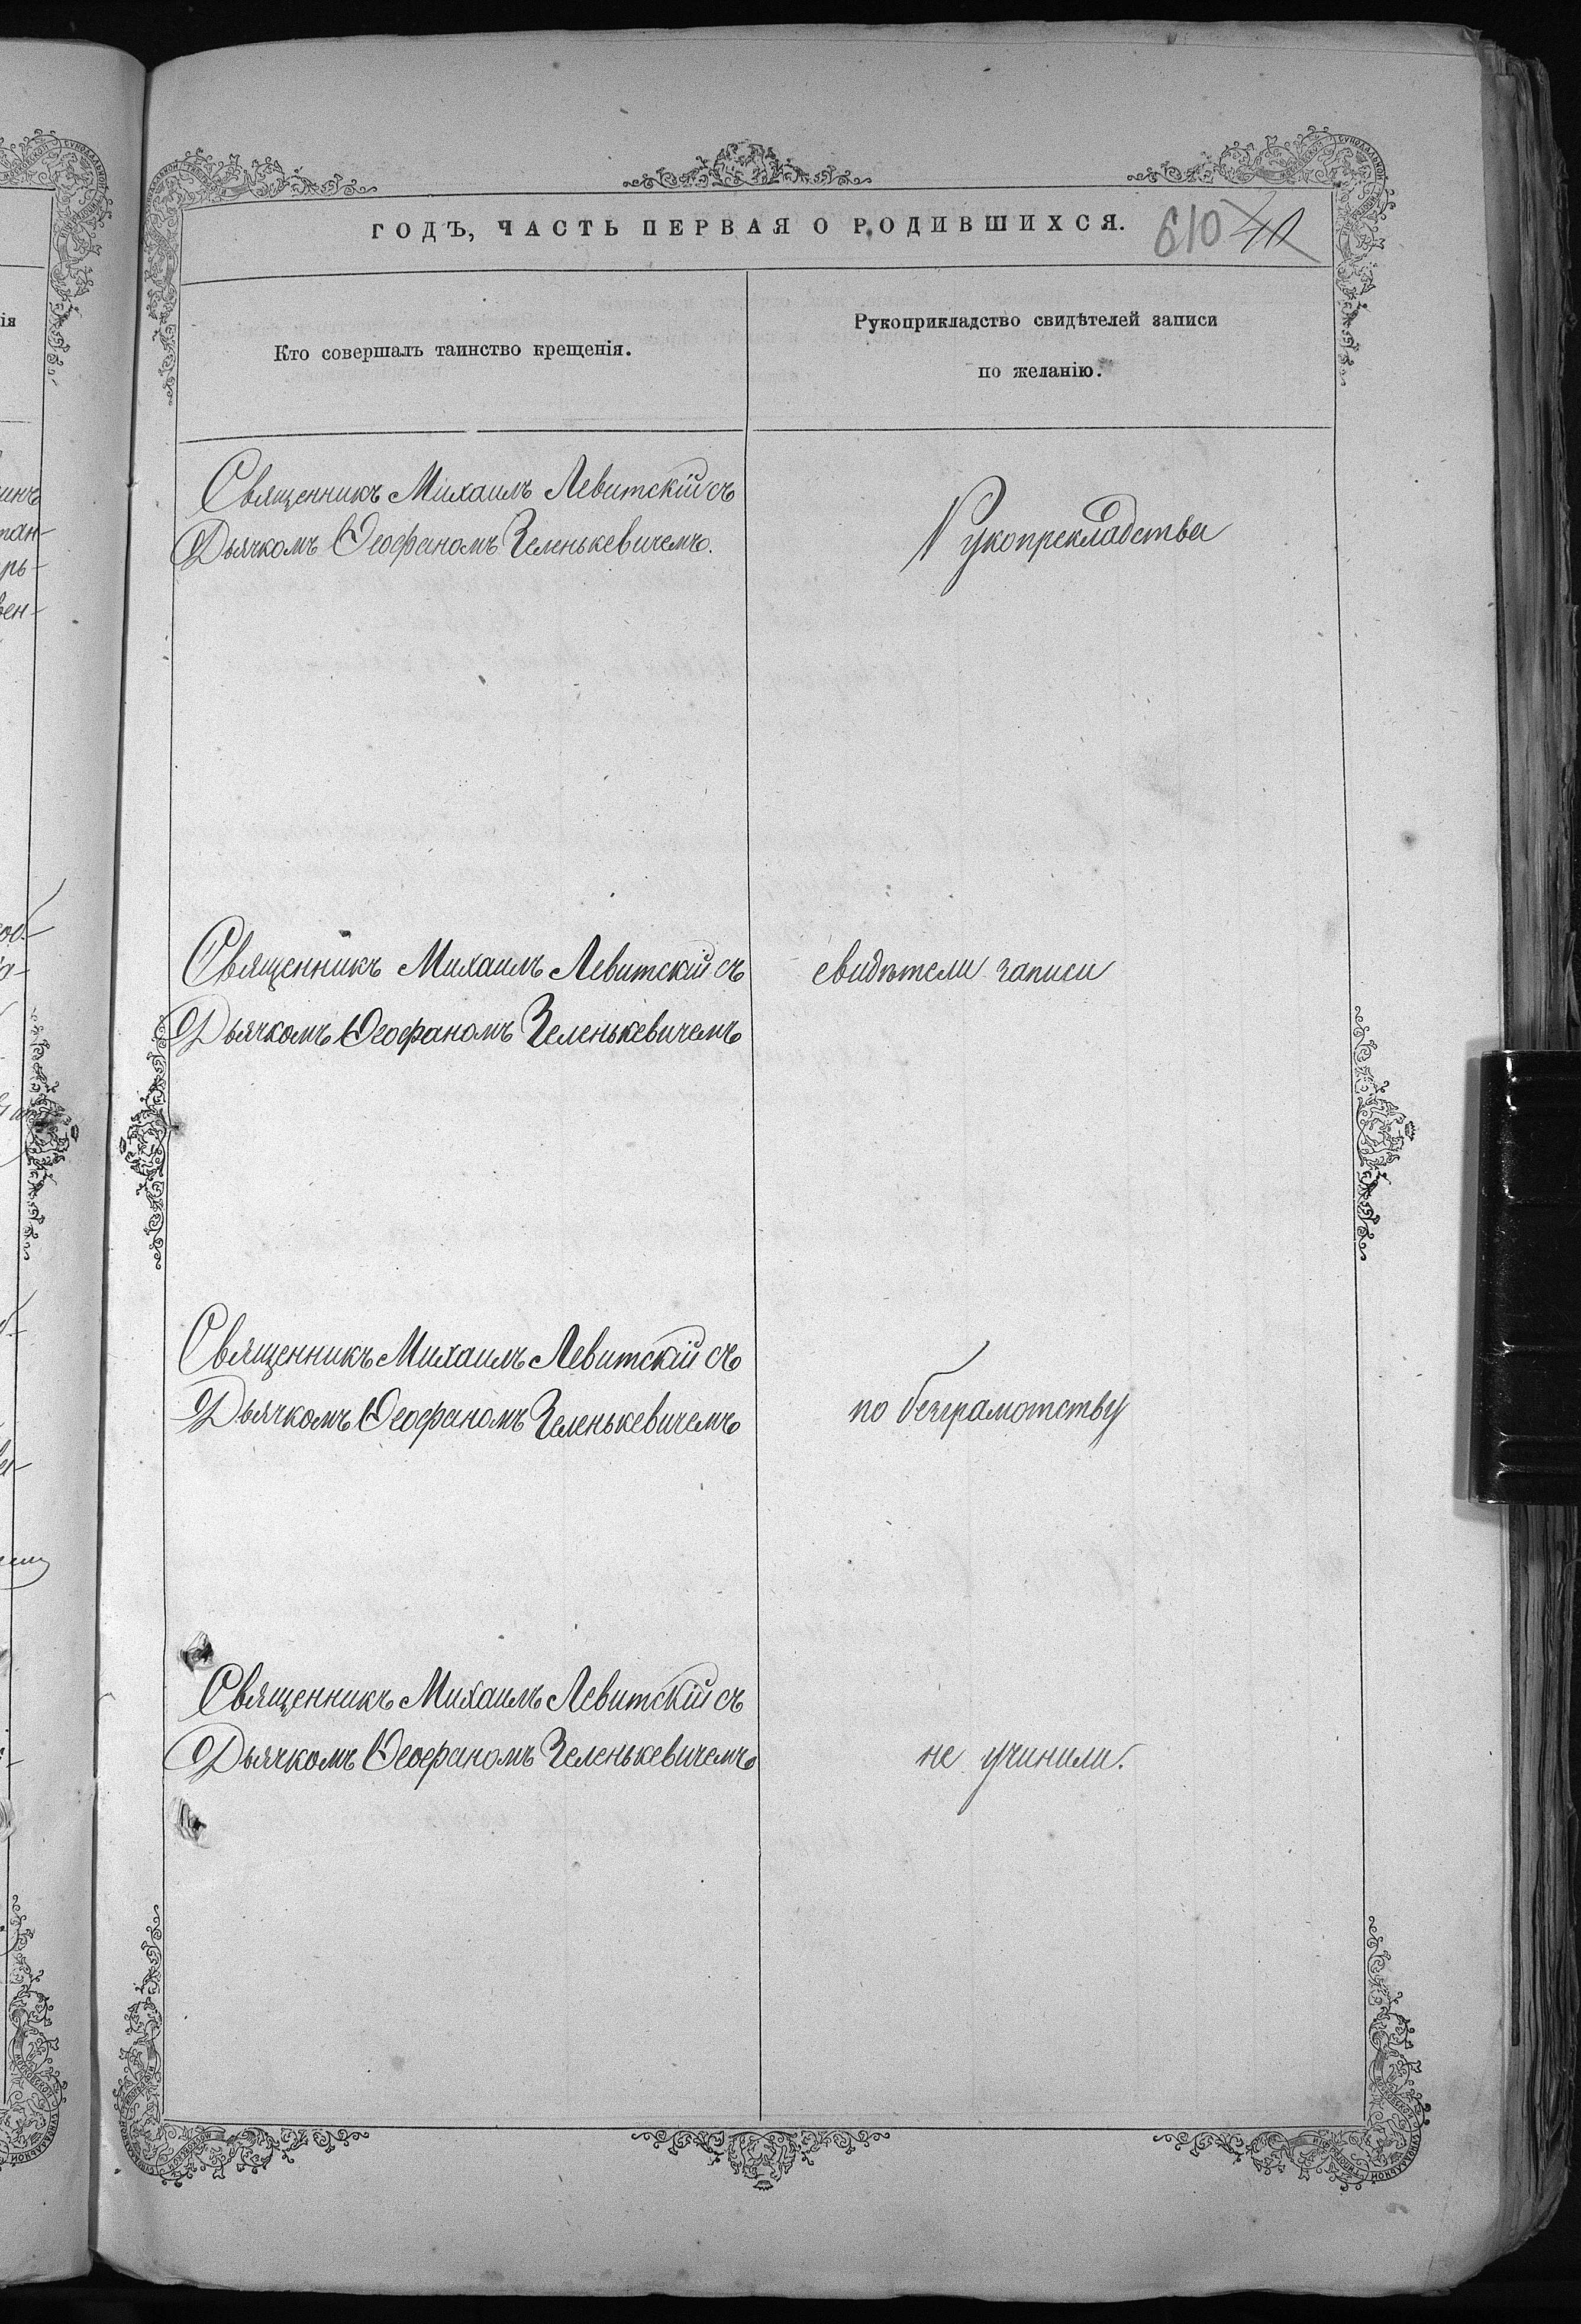 ГОДЪ, ЧАСТЬ ПЕРВАЯ О РОДИВШИХСЯ.
610
Кто совершалъ таинство крещенія.
Рукоприкладство свидѣтелей записи
по желанію.
Священникъ Михаилъ Левитскій съ
Дьячкомъ Ѳеофаномъ Зеленькевичемъ.
Рукопрекладства
Священникъ Михаилъ Левитскій съ
Дьячкомъ Ѳеофаномъ Зеленькевичемъ
свидѣтели записи
Священникъ Михаилъ Левитскій съ
Дьячкомъ Ѳеофаномъ Зеленькевичемъ
по безграмотству
Священникъ Михаилъ Левитскій съ
Дьячкомъ Ѳеофаномъ Зеленькевичемъ
не учинили.